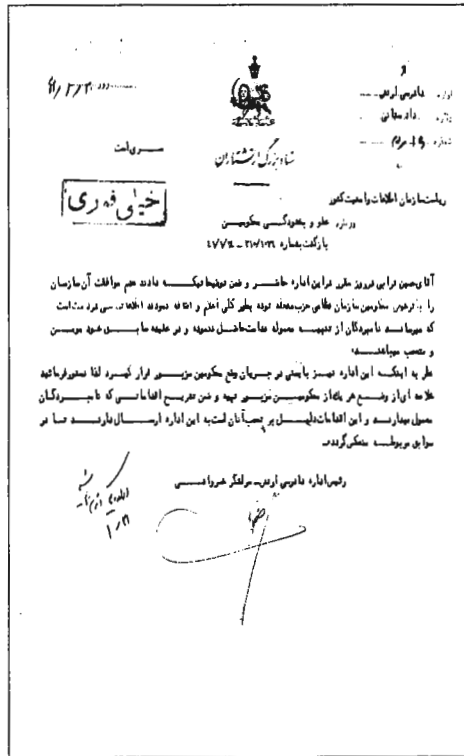 اداره دادرسی ارتش
دایره دادستانی
شماره
ستاد بزرگ ارتشتاران
سری است
خیلی فوری
ریاست سازمان اطلاعات و امنیت کشور
درباره عفو و بخشودگی محکومین
بازگشت بشماره
آقای حسین ترابی دیروز عصر در این اداره حاضر و ضمن توضیحاتیکه دادند عدم موافقت آن سازمان
را با ترخیص محکومین سازمان نظامی حزب منحله توده بطور کلی اعلام و اضافه نمودند اطلاعاتی در دست است
که میرساند نامبردگان از تنبیه معموله ندامت حاصل ننموده و در عقیده سابق خود مومن
و متعصب میباشند.
نظر به اینکه این اداره نیز بایستی در جریان وضع محکومین مزبور قرار گیرد لذا دستور فرمائید
خلاصه ای از وضع هر یک از محکومین مزبور تهیه و ضمن تشریح اقداماتی که نامبردگان
معمول میدارند و این اقدامات دلیل بر تعصب آنان است به این اداره ارسال دارند تا در
سوابق مربوطه منعکس گردد.
رئیس اداره دادرسی ارتش - سرلشگر خسروانی